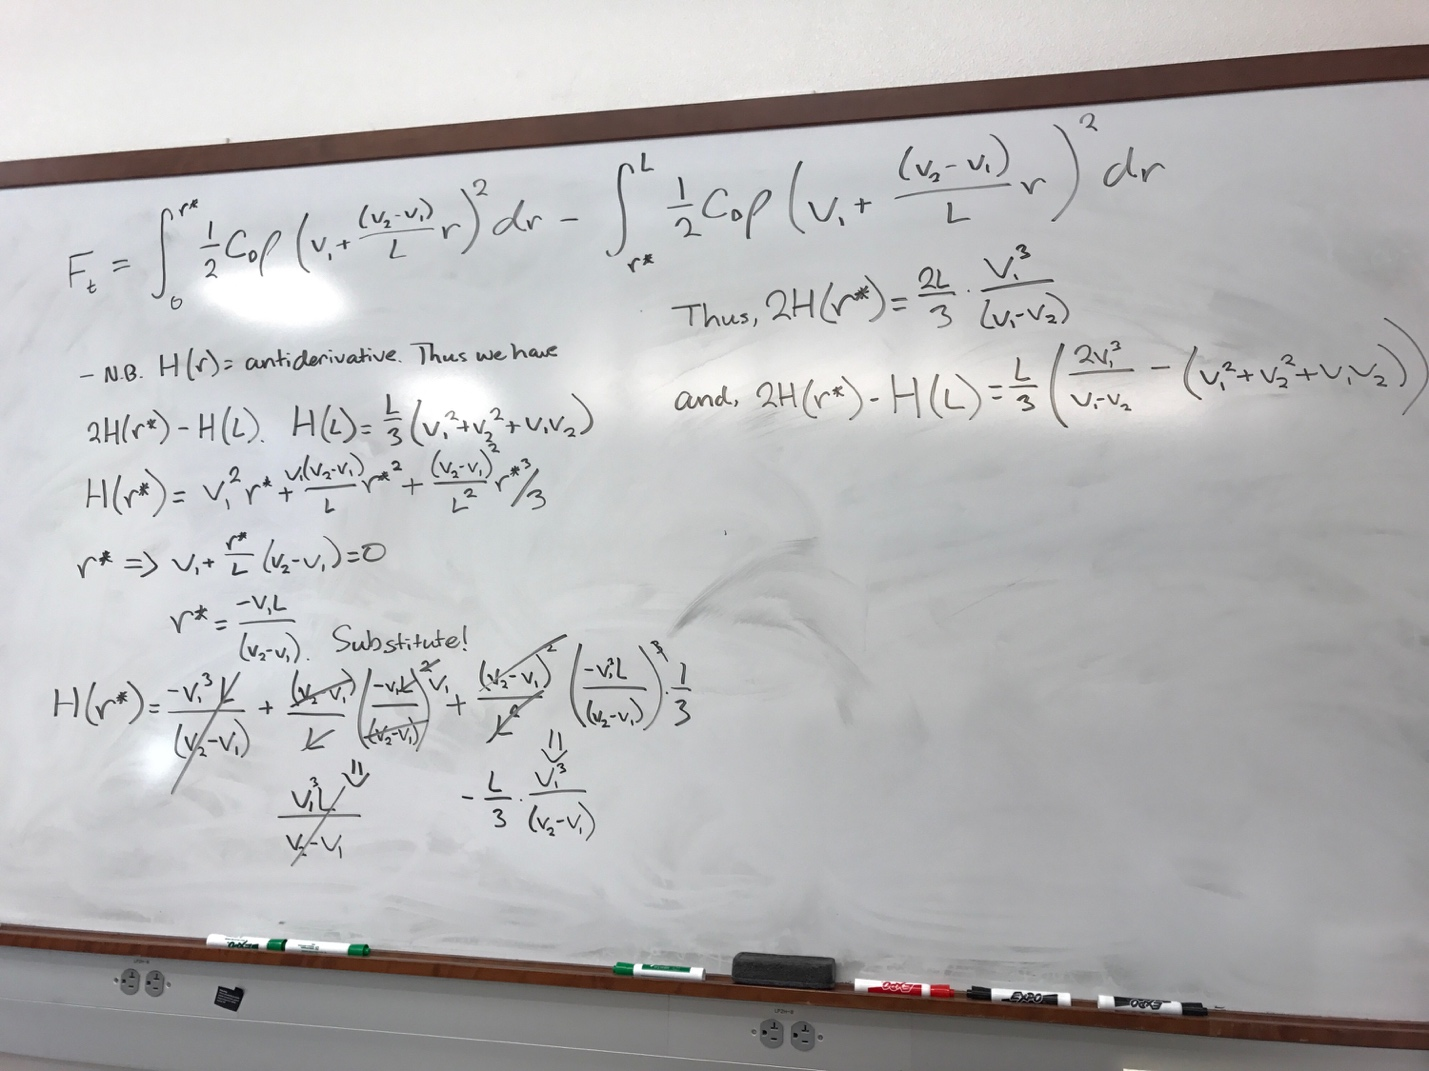 F_t = ∫_0^{r*} 1/2 C_D ρ (v_1 + (v_2 - v_1)/L r)^2 dr - ∫_{r*}^L 1/2 C_D ρ (v_1 + (v_2 - v_1)/L r)^2 dr
- N.B. H(r) = antiderivative. Thus we have
2H(r*) - H(L). H(L) = L/3 (v_1^2 + v_2^2 + v_1v_2)
H(r*) = v_1^2 r* + v_1(v_2-v_1)/L r*^2 + (v_2-v_1)^2/L^2 r*^3/3
r* => v_1 + r*/L (v_2 - v_1) = 0
r* = -v_1L/(v_2-v_1). Substitute!
H(r*) = -v_1^3 L/(v_2-v_1) + (v_2-v_1)/L (-v_1L/(v_2-v_1))^2 v_1 + (v_2-v_1)^2/L^2 (-v_1L/(v_2-v_1))^3 · 1/3
v_1^3L/(v_2-v_1) - L/3 · v_1^3/(v_2-v_1)
Thus, 2H(r*) = 2L/3 · v_1^3/(v_1-v_2)
and, 2H(r*) - H(L) = L/3 (2v_1^3/(v_1-v_2) - (v_1^2 + v_2^2 + v_1v_2))
EXPO
EXPO
EXPO
EXPO